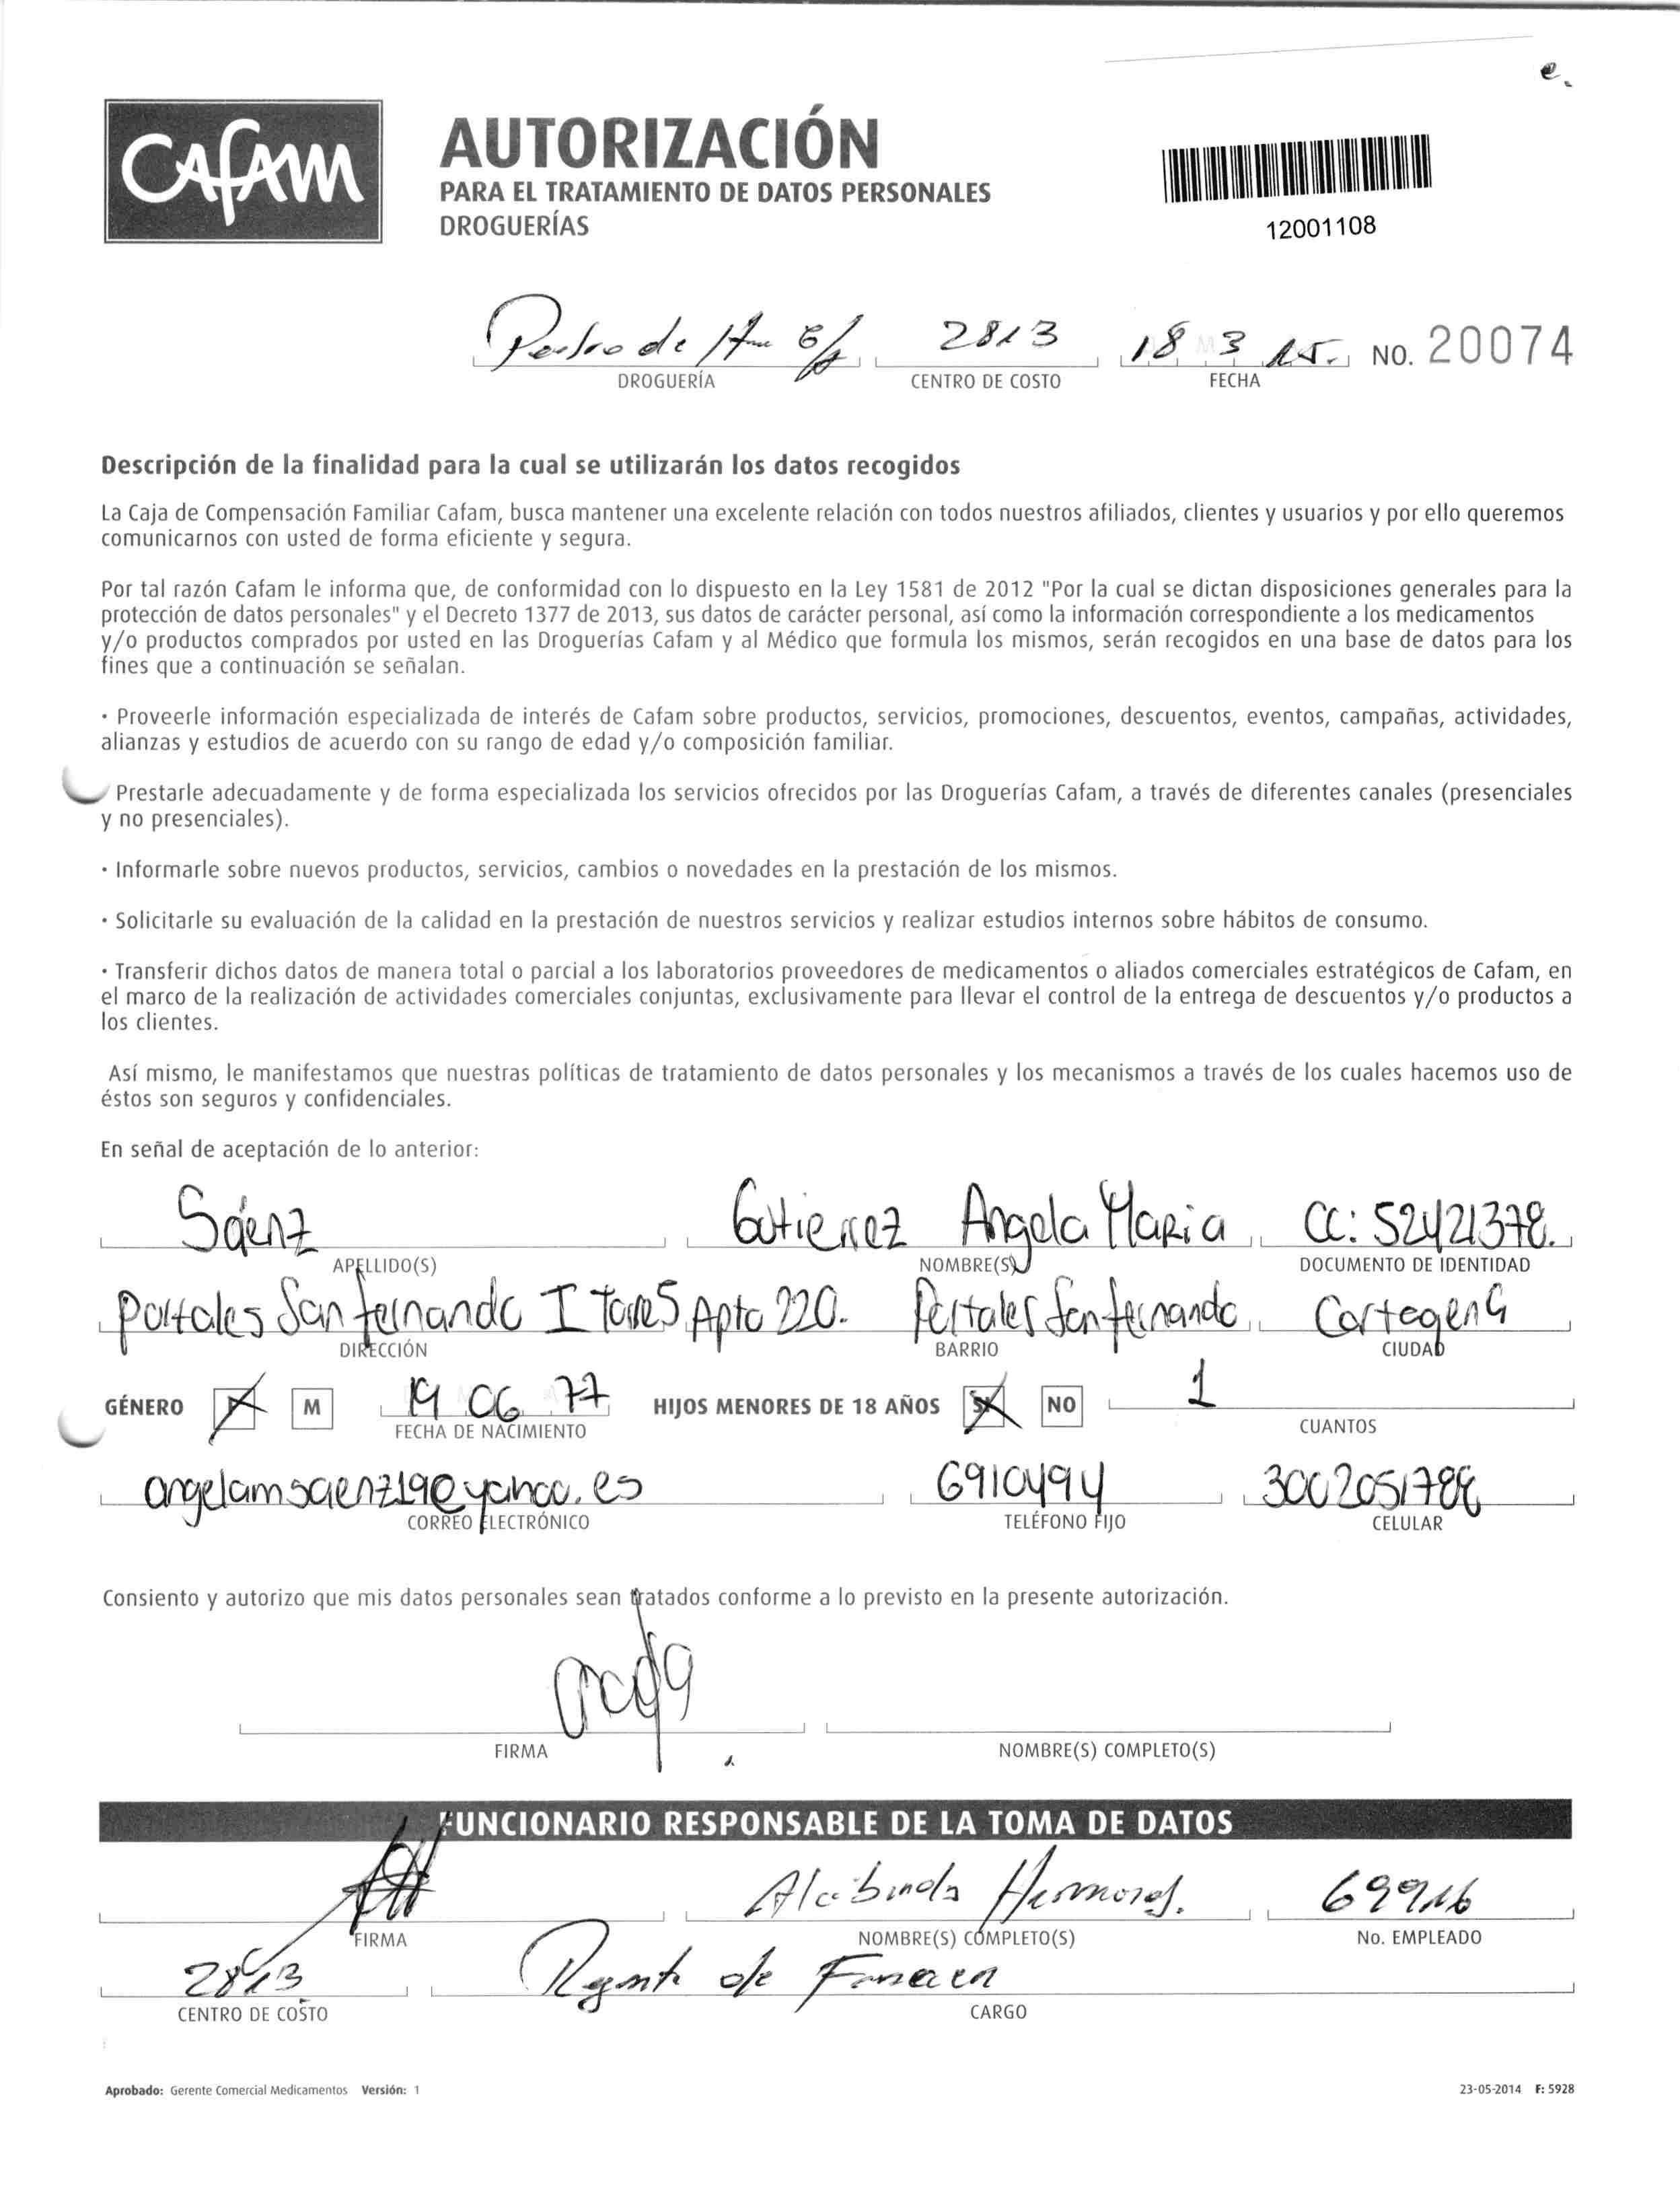 e.
CAFAM
AUTORIZACIÓN
PARA EL TRATAMIENTO DE DATOS PERSONALES
DROGUERÍAS
12001108
Pedro de 2813 18 3 15. NO. 20074
DROGUERÍA CENTRO DE COSTO FECHA
Descripción de la finalidad para la cual se utilizarán los datos recogidos
La Caja de Compensación Familiar Cafam, busca mantener una excelente relación con todos nuestros afiliados, clientes y usuarios y por ello queremos
comunicarnos con usted de forma eficiente y segura.
Por tal razón Cafam le informa que, de conformidad con lo dispuesto en la Ley 1581 de 2012 "Por la cual se dictan disposiciones generales para la
protección de datos personales" y el Decreto 1377 de 2013, sus datos de carácter personal, así como la información correspondiente a los medicamentos
y/o productos comprados por usted en las Droguerías Cafam y al Médico que formula los mismos, serán recogidos en una base de datos para los
fines que a continuación se señalan.
· Proveerle información especializada de interés de Cafam sobre productos, servicios, promociones, descuentos, eventos, campañas, actividades,
alianzas y estudios de acuerdo con su rango de edad y/o composición familiar.
Prestarle adecuadamente y de forma especializada los servicios ofrecidos por las Droguerías Cafam, a través de diferentes canales (presenciales
y no presenciales).
· Informarle sobre nuevos productos, servicios, cambios o novedades en la prestación de los mismos.
· Solicitarle su evaluación de la calidad en la prestación de nuestros servicios y realizar estudios internos sobre hábitos de consumo.
· Transferir dichos datos de manera total o parcial a los laboratorios proveedores de medicamentos o aliados comerciales estratégicos de Cafam, en
el marco de la realización de actividades comerciales conjuntas, exclusivamente para llevar el control de la entrega de descuentos y/o productos a
los clientes.
Así mismo, le manifestamos que nuestras políticas de tratamiento de datos personales y los mecanismos a través de los cuales hacemos uso de
éstos son seguros y confidenciales.
En señal de aceptación de lo anterior:
Sáenz Gutierrez Angela Maria CC: 52421378.
APELLIDO(S) NOMBRE(S) DOCUMENTO DE IDENTIDAD
Portales San fernando I Torre 5 Apto 220. Portales San fernando Cartagena
DIRECCIÓN BARRIO CIUDAD
GÉNERO F M 19 06 77 HIJOS MENORES DE 18 AÑOS SI NO 1
FECHA DE NACIMIENTO CUANTOS
angelamsaenz19@yahoo.es 6910494 3002051788
CORREO ELECTRÓNICO TELÉFONO FIJO CELULAR
Consiento y autorizo que mis datos personales sean tratados conforme a lo previsto en la presente autorización.
FIRMA NOMBRE(S) COMPLETO(S)
FUNCIONARIO RESPONSABLE DE LA TOMA DE DATOS
69916
FIRMA NOMBRE(S) COMPLETO(S) No. EMPLEADO
2813 Regente de
CENTRO DE COSTO CARGO
Aprobado: Gerente Comercial Medicamentos Versión: 1 23-05-2014 F: 5928